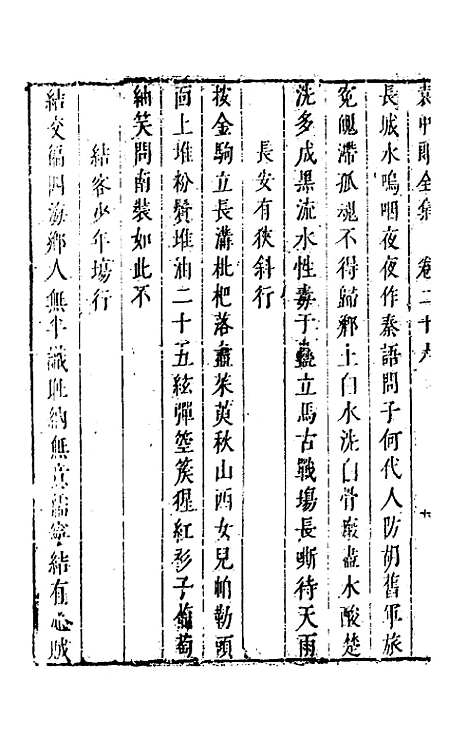 袁中郎全集　卷二十九　十
長城水嗚咽夜夜作秦語問子何代人防胡舊軍旅
冤魄滯孤魂不得歸鄉土白水洗白骨𩪼盡水酸楚
洗多成黑流水性毒于蠱立馬古戰場長嘶待天雨
長安有狹斜行
拔金駒立長溝枇杷落盡茱萸秋山西女兒帕勒頭
面上堆粉鬢堆油二十五絃彈箜篌猩紅衫子葡萄
紬笑問南裝如此不
結客少年場行
結交徧四海鄉人無半識吐納無真儒寧結有心賊